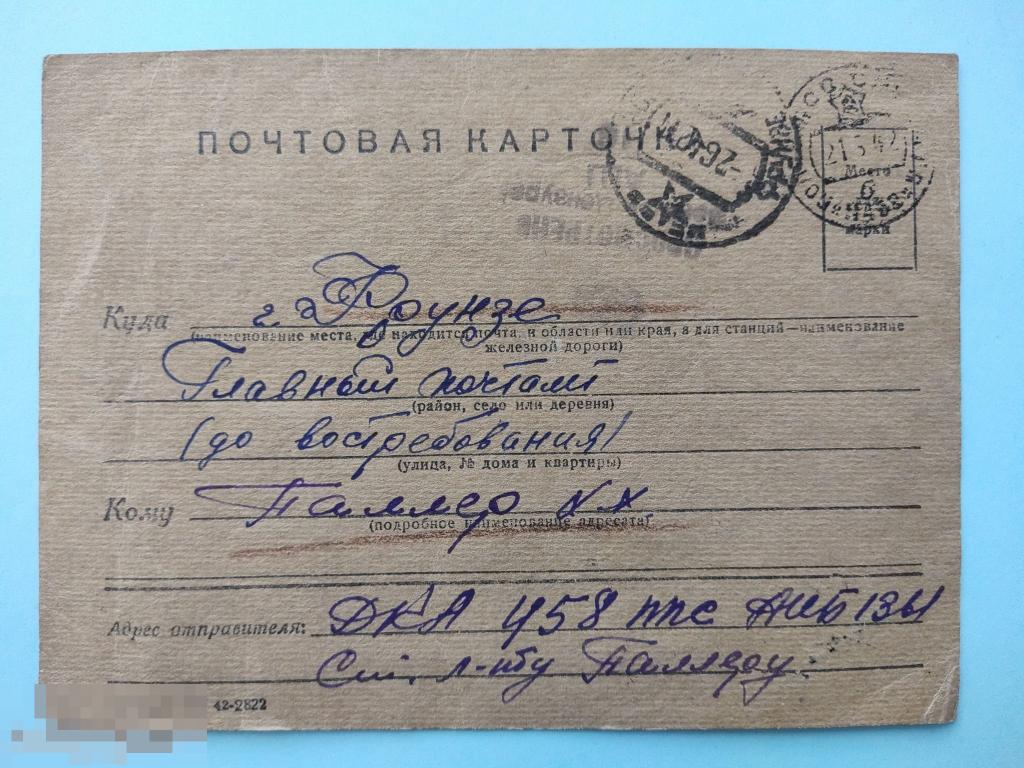 ПОЧТОВАЯ КАРТОЧКА
21 3 42
Место
для
марки
Куда г. Фрунзе
(наименование места, где находится почта, и области или края, а для станций—наименование
железной дороги)
Главный почтамт
(район, село или деревня)
(до востребования)
(улица, № дома и квартиры)
Кому Паллер
(подробное наименование адресата)
Адрес отправителя: ДКА 458 ппс
Ст. л-нту Паллеру.
42-2822